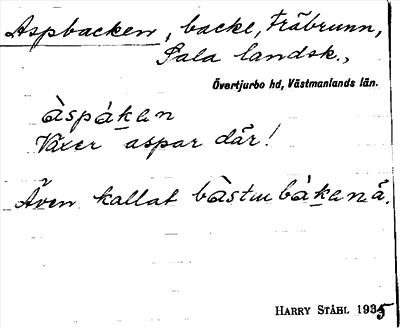 Aspbacken, backe, Fräbrunn,
Sala landsk.,
Övertjurbo hd, Västmanlands län.
àspákan
Växer aspar där!
Även kallat bàstubákanä.
HARRY STÅHL 1935